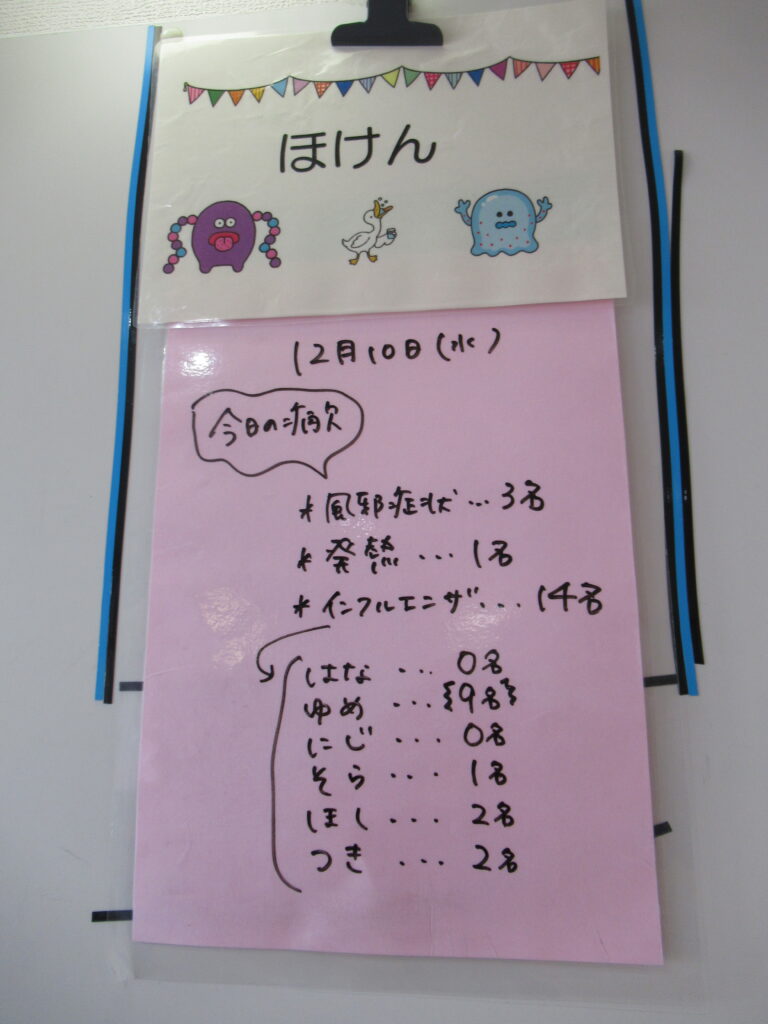 ほけん
12月10日(水)
今日の病欠
*風邪症状...3名
*発熱...1名
*インフルエンザ...14名
はな...0名
ゆめ...9名
にじ...0名
そら...1名
ほし...2名
つき...2名